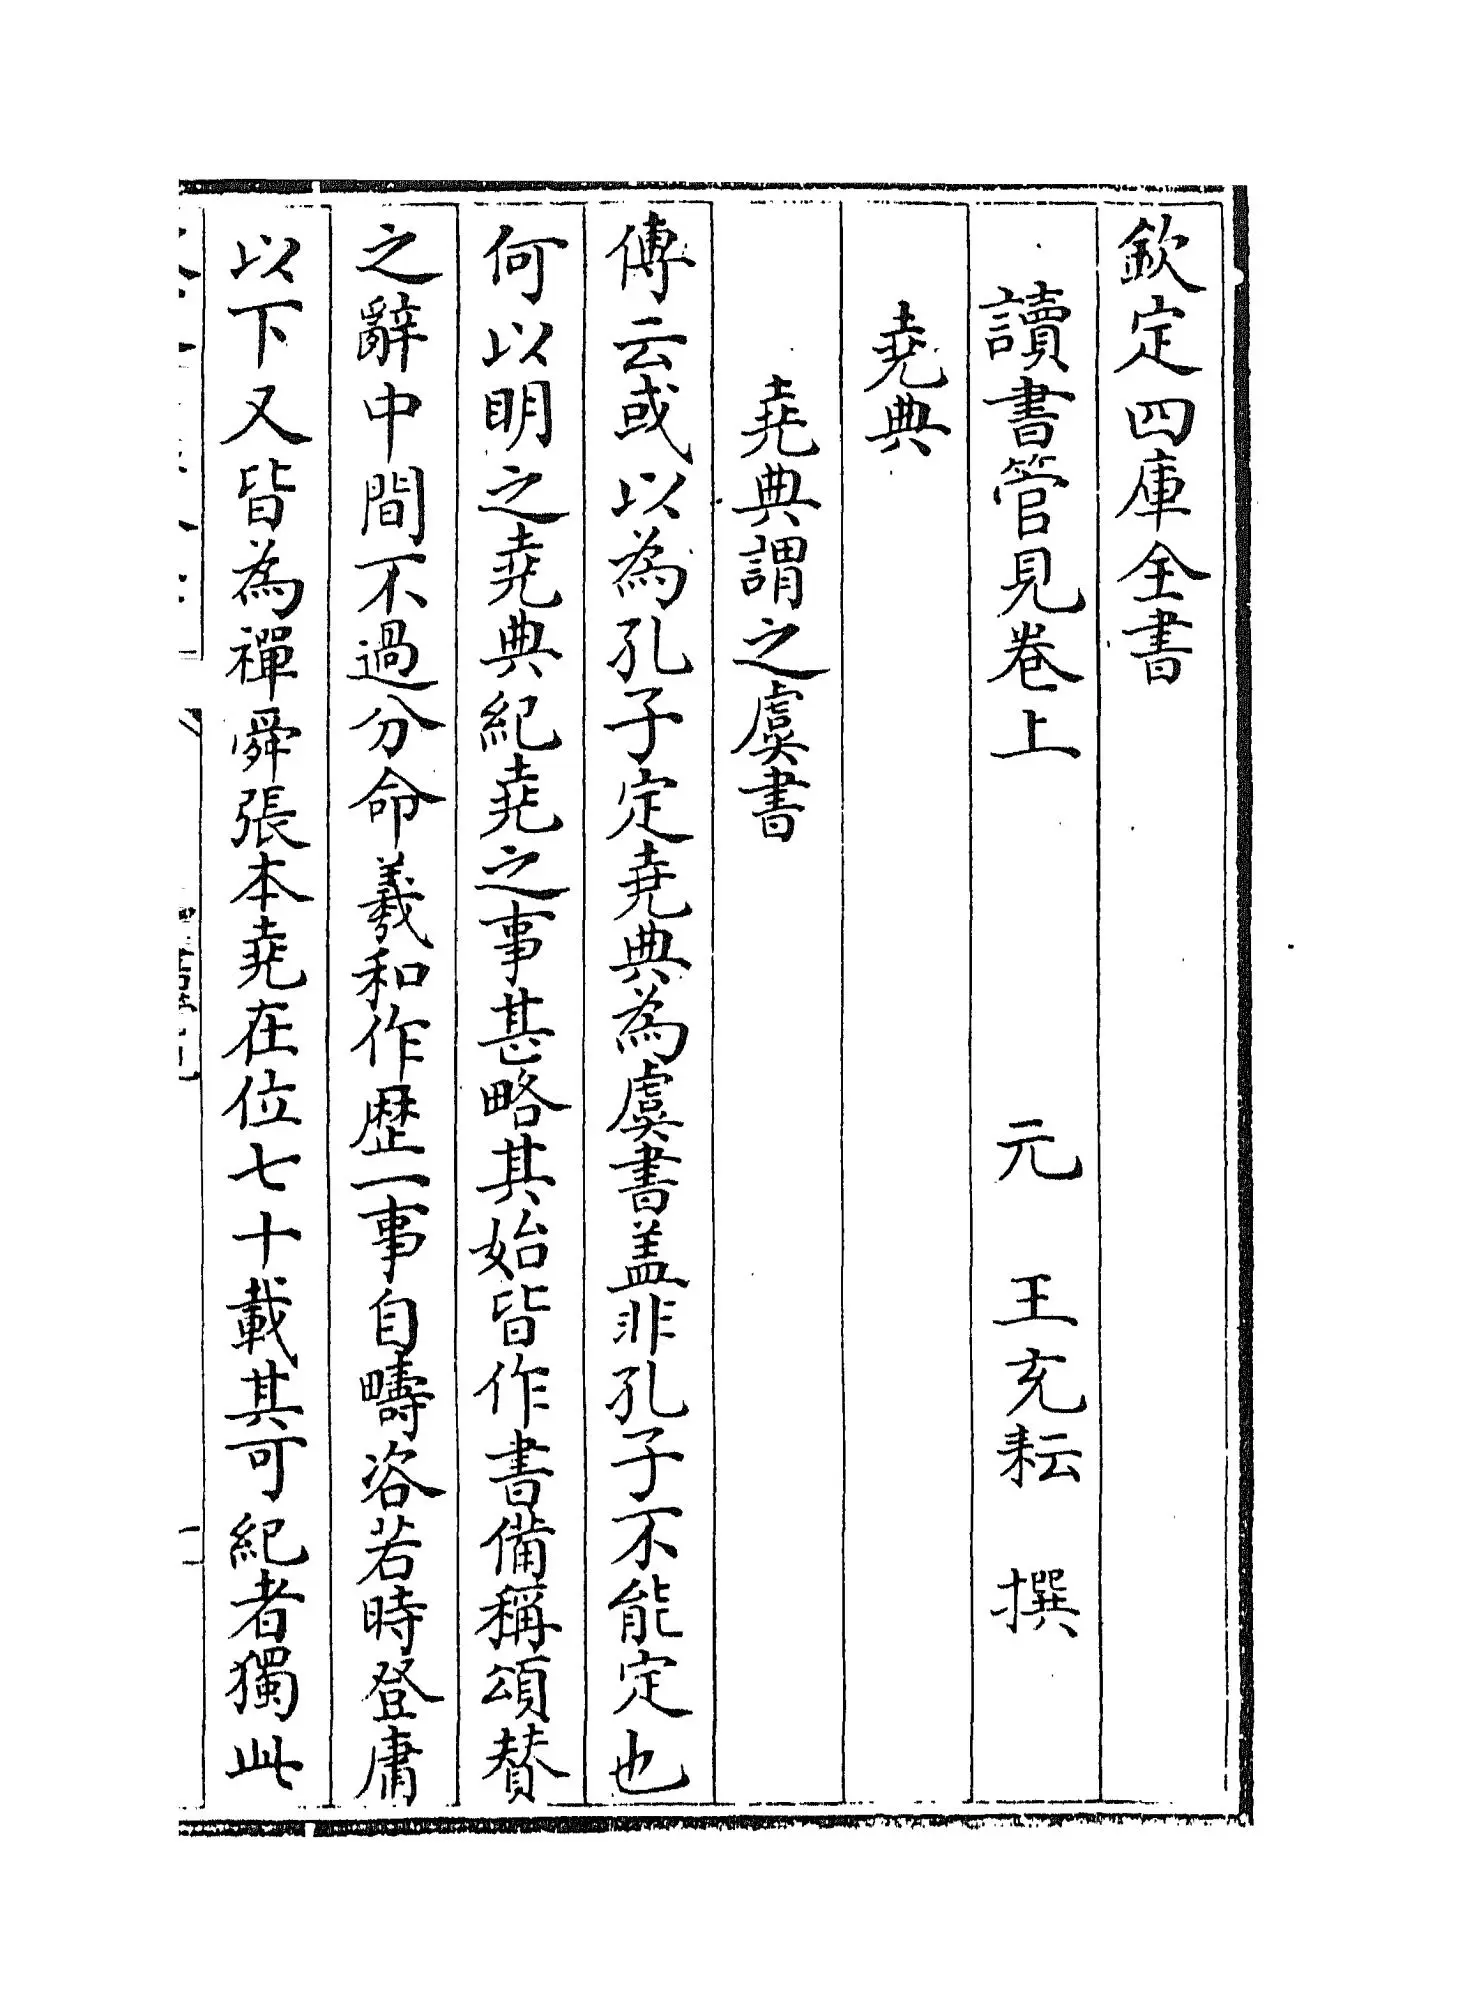 欽定四庫全書
讀書管見卷上　元　王充耘　撰
堯典
堯典謂之虞書
傳云或以為孔子定堯典為虞書盖非孔子不能定也
何以明之堯典紀堯之事甚略其始皆作書備稱頌賛
之辭中間不過分命羲和作歴一事自疇咨若時登庸
以下又皆為禪舜張本堯在位七十載其可紀者獨此